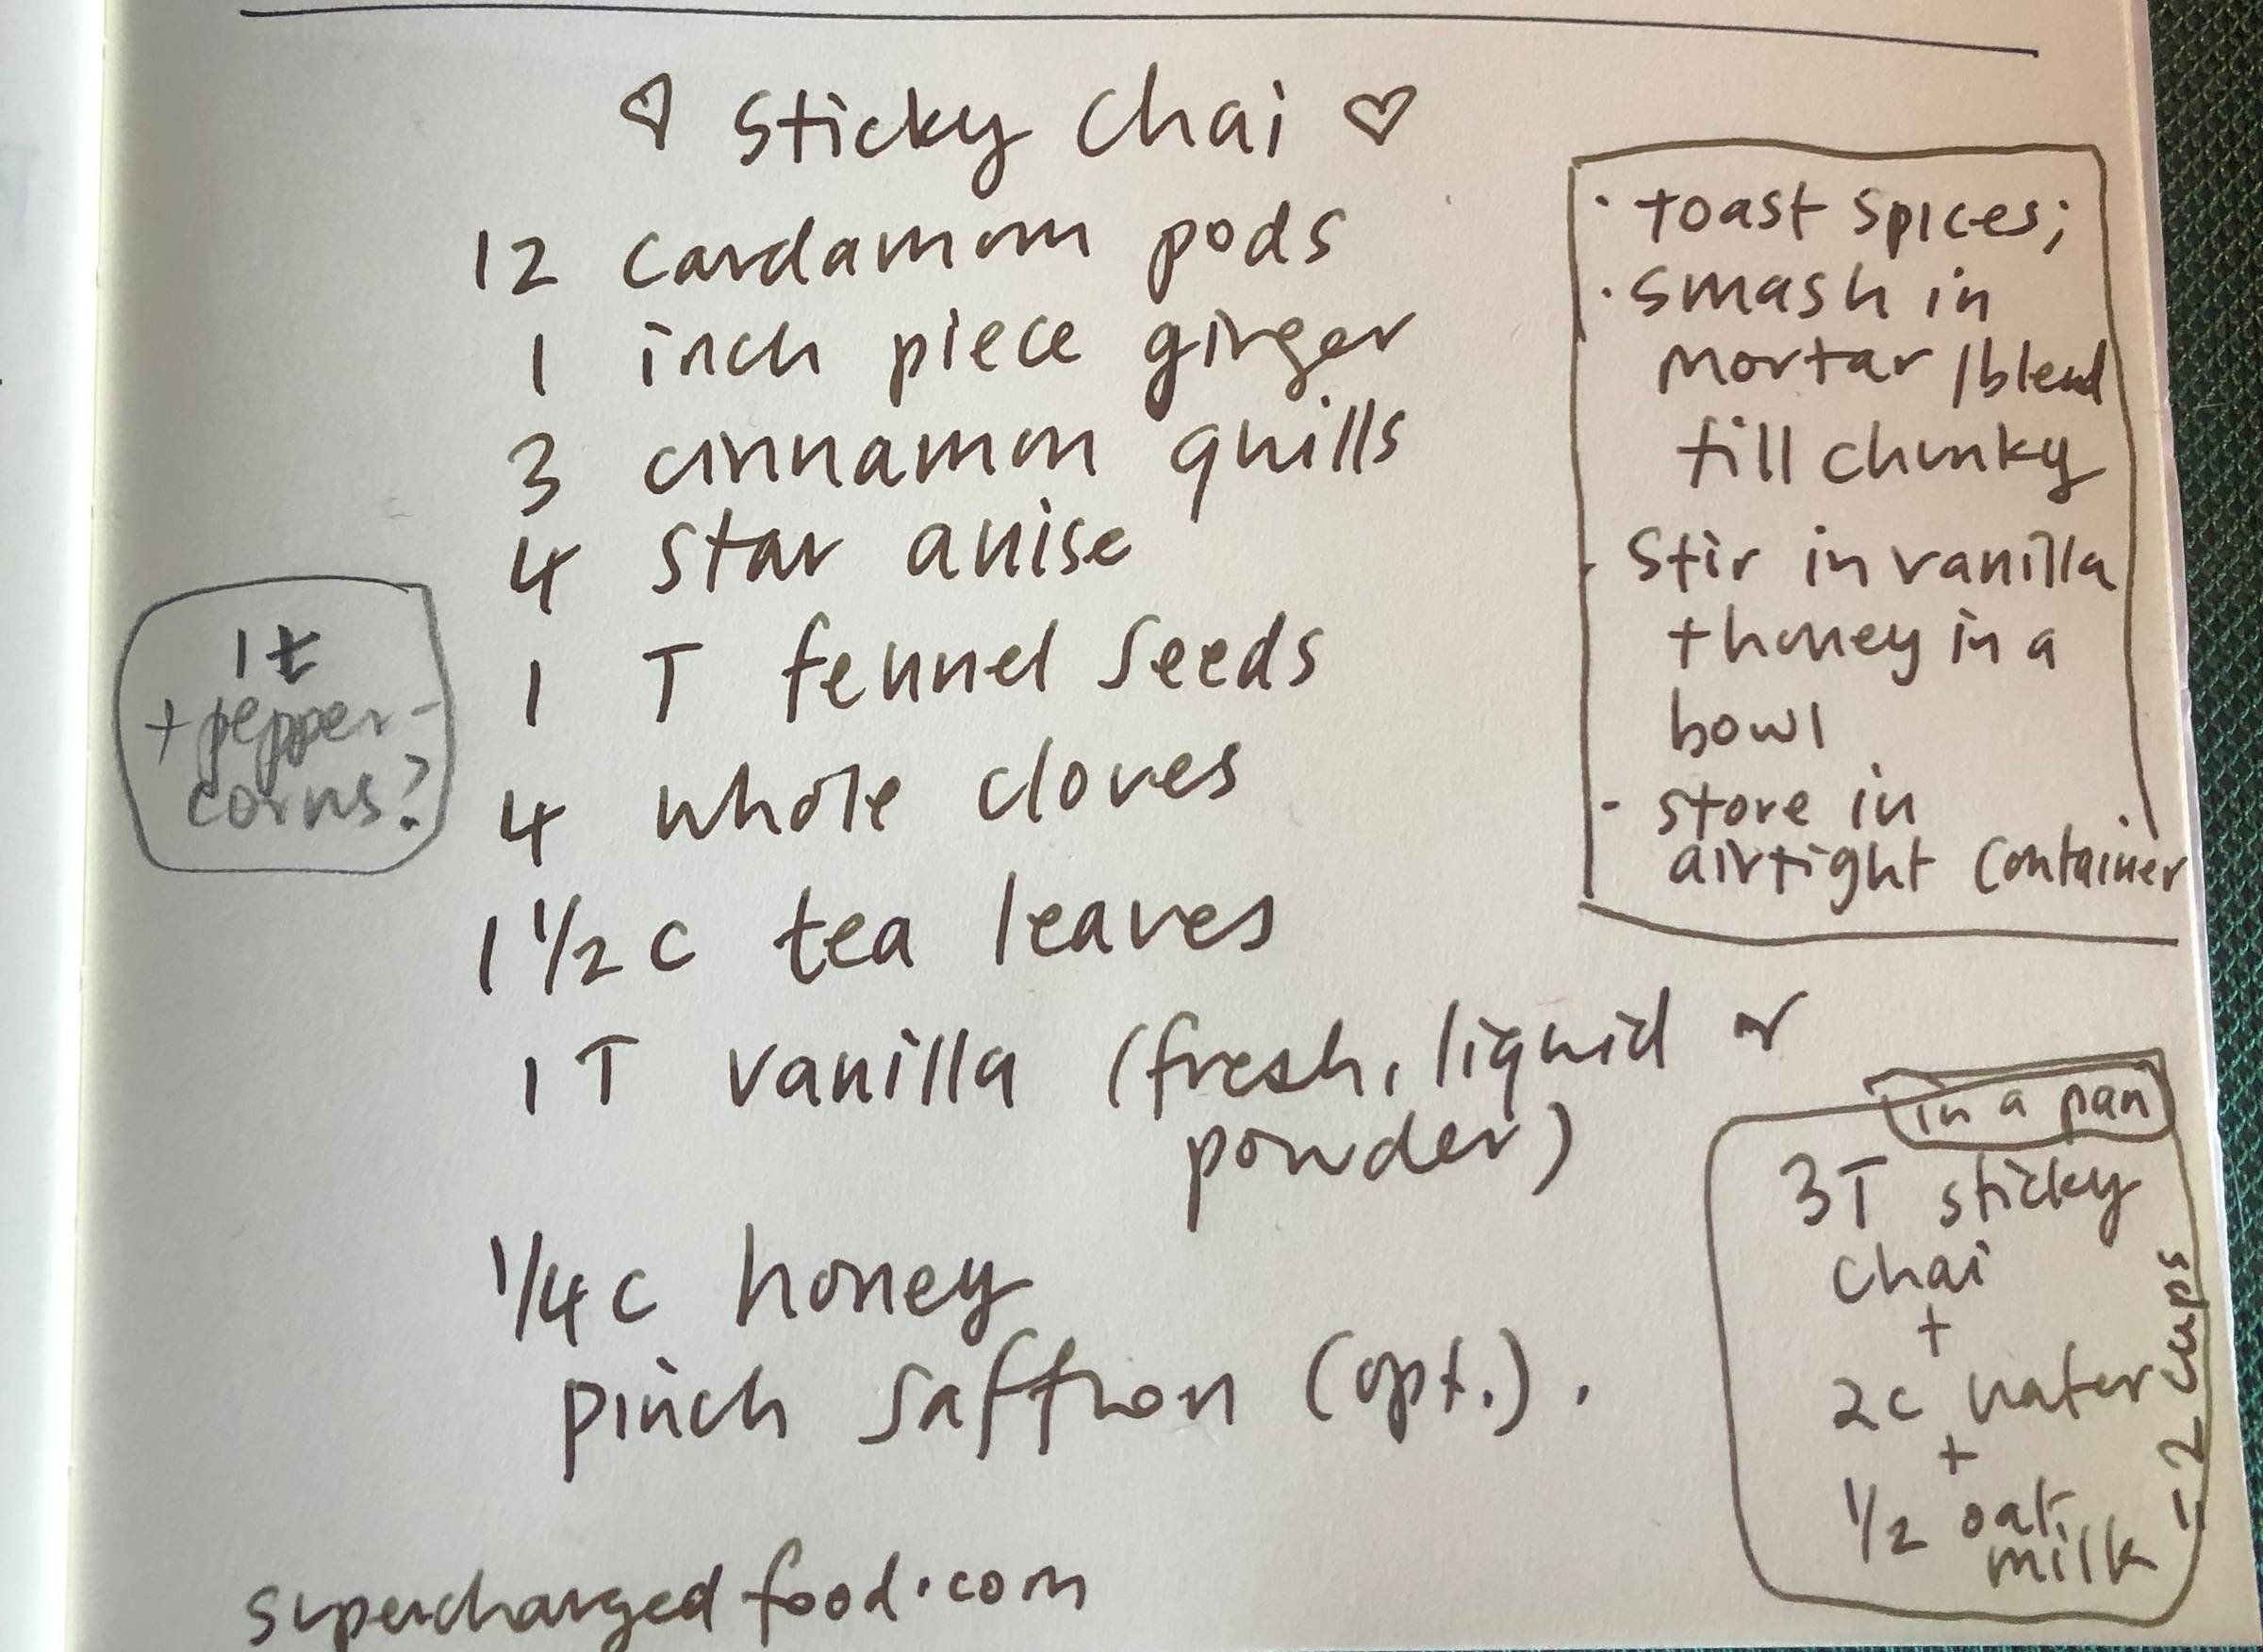 ♡ Sticky Chai ♡
12 cardamom pods
1 inch piece ginger
3 cinnamon quills
4 star anise
1 T fennel seeds
4 whole cloves
1 1/2 c tea leaves
1 T vanilla (fresh, liquid or
powder)
1/4 c honey
pinch saffron (opt.).
supercharged food.com
1 t
+ pepper-
corns?
· toast spices;
· smash in
mortar / blend
till chunky
- Stir in vanilla
+ honey in a
bowl
- store in
airtight container
in a pan
3T sticky
chai
+
2c water
+
1/2 oat
milk
1-2 cups